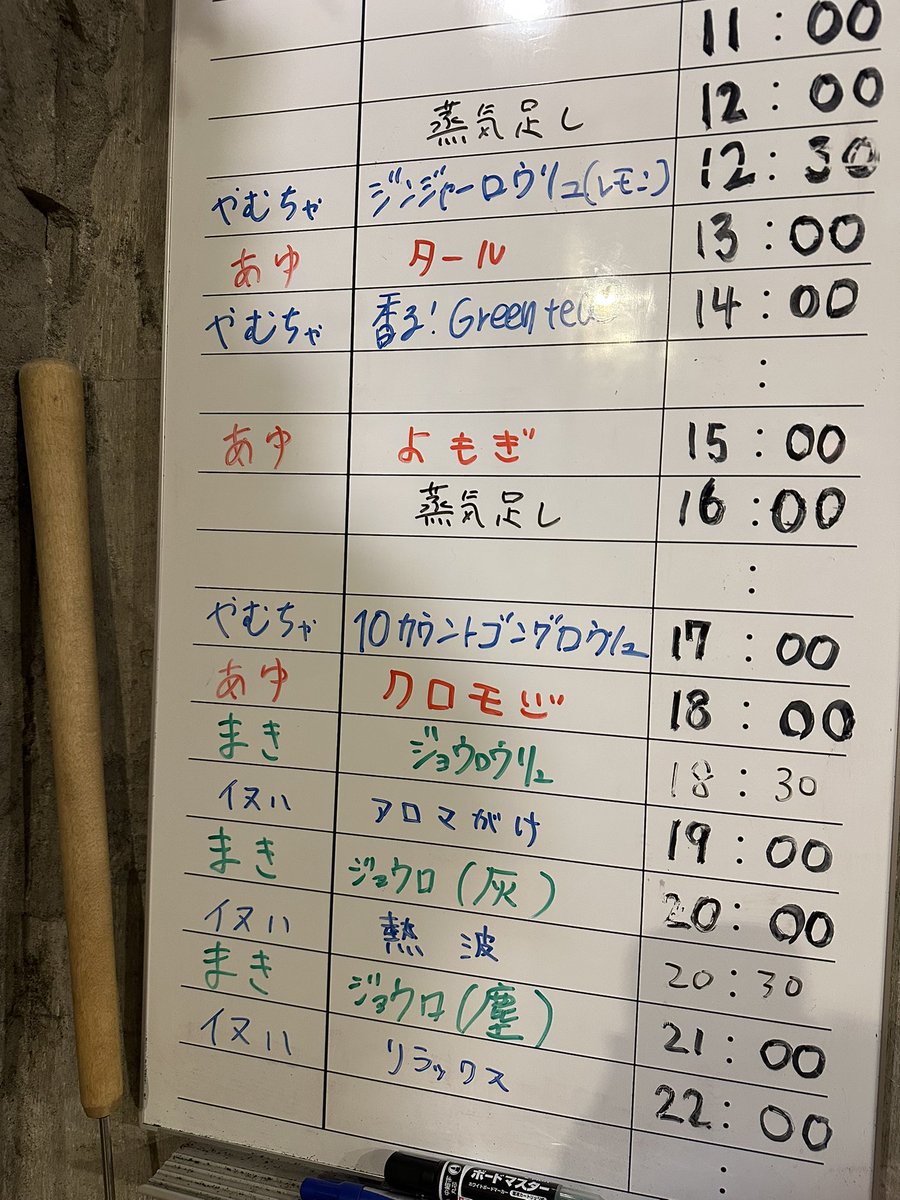 11:00
蒸気足し 12:00
やむちゃ ジンジャーロウリュ(レモン) 12:30
あゆ タール 13:00
やむちゃ 香る! Green tea 14:00
:
あゆ よもぎ 15:00
蒸気足し 16:00
:
やむちゃ 10カウントゴングロウリュ 17:00
あゆ クロモジ 18:00
まき ジョウロウリュ 18:30
イヌい アロマがけ 19:00
まき ジョウロ(灰) 20:00
イヌい 熱波 20:30
まき ジョウロ(塵) 21:00
イヌい リラックス 22:00
:
ボードマスター
ホワイトボードマーカー